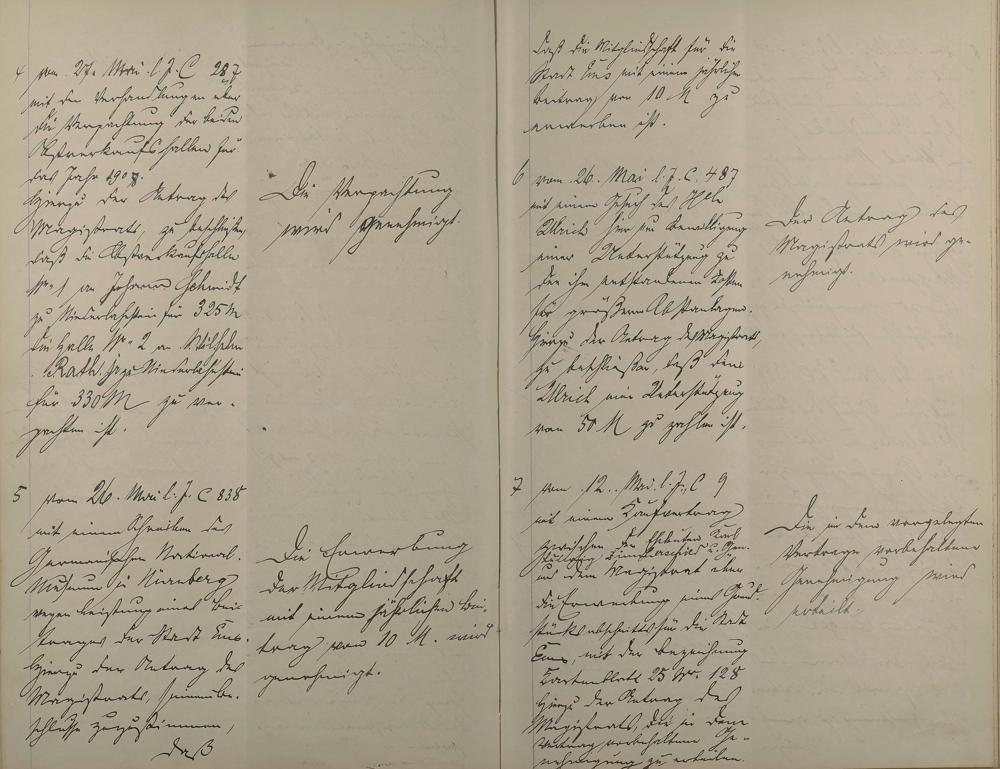 4 vom 27. Mai l. J. C 287
mit den Verhandlungen über
die Verpachtung der beiden
Obstverkaufshallen für
das Jahr 1908.
Hierzu der Antrag des
Magistrats, zu beschließen,
daß die Obstverkaufshalle
Nr. 1 an Johann Schmidt
zu Niederlahnstein für 325 M
die Halle Nr. 2 an Wilhelm
Rath zu Niederlahnstein
für 330 M zu ver-
pachten ist.
Die Verpachtung
wird genehmigt.
5 vom 26. Mai l. J. C 838
mit einem Schreiben des
Germanischen National-
Museums in Nürnberg
wegen Leistung eines Bei-
trages der Stadt Ems.
Hierzu der Antrag des
Magistrats, seinem Be-
schlusse zuzustimmen,
daß
Die Erwerbung
der Mitgliedschaft
mit einem jährlichen Bei-
trag von 10 M. wird
genehmigt.
daß die Mitgliedschaft für die
Stadt Ems mit einem jährlichen
Beitrag von 10 M zu
erwerben ist.
6 vom 26. Mai l. J. C. 487
mit einem Gesuch des
Ulrich hier um Bewilligung
einer Unterstützung zu
den ihm entstandenen Kosten
für größere Obstanlagen.
Hierzu der Antrag des Magistrats,
zu beschließen, daß dem
Ulrich eine Unterstützung
von 50 M zu zahlen ist.
Der Antrag des
Magistrats wird ge-
nehmigt.
7 vom 12. Mai l. J. C 9
mit einem Kaufvertrag
zwischen den Eheleuten Karl
und dem Magistrat über
die Erwerbung eines Grund-
stücksabschnitts für die Stadt
Ems, mit der Bezeichnung
Kartenblatt 25 Nr. 128
Hierzu der Antrag des
Magistrats, die in dem
Vertrag vorbehaltene Ge-
nehmigung zu erteilen.
Die in dem vorgelegten
Vertrage vorbehaltene
Genehmigung wird
erteilt.